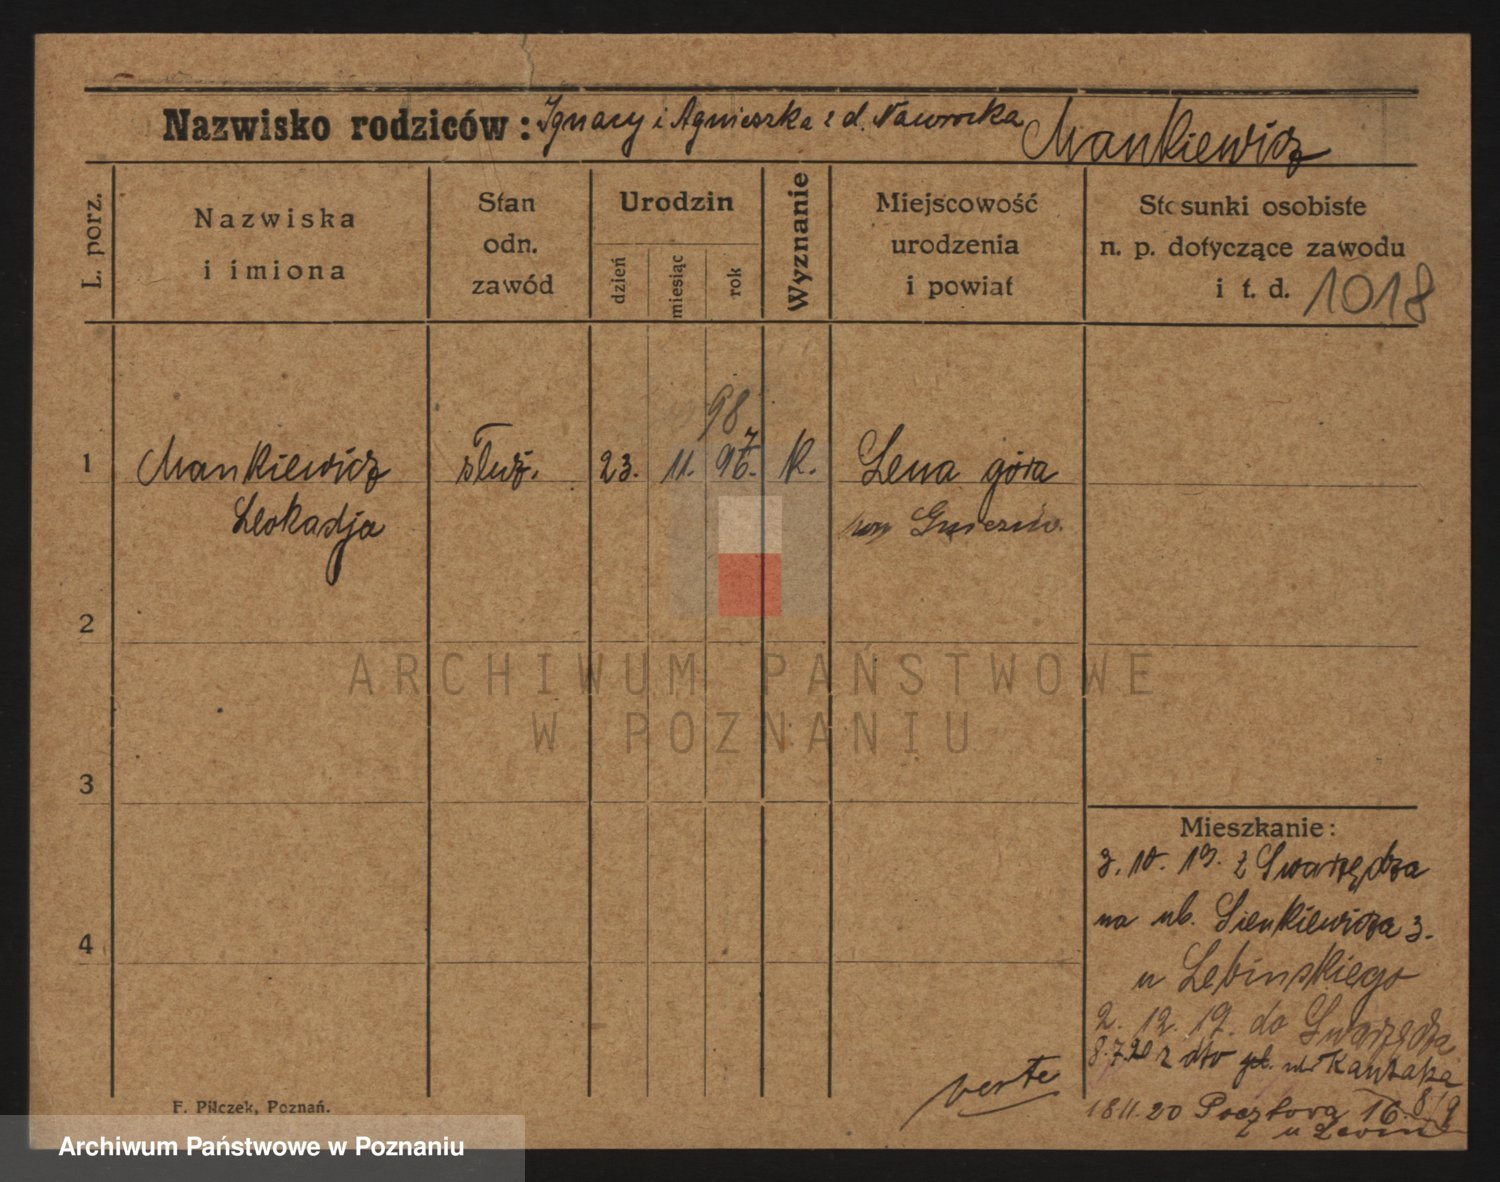 Nazwisko rodziców: Ignacy i Agnieszka z d. Nawrocka Mankiewicz
L. porz.
Nazwiska
i imiona
Stan
odn.
zawód
Urodzin
dzień
miesiąc
rok
Wyznanie
Miejscowość
urodzenia
i powiat
Stosunki osobiste
n. p. dotyczące zawodu
i t. d. 1018
98
1 Mankiewicz służ. 23. 11. 97. k. Lewa góra
Leokadja Gniezno.
2
3
4
ARCHIWUM PAŃSTWOWE
W POZNANIU
Mieszkanie:
3. 10. 19. z Swarzędza
na ul. Sienkiewicza 3.
u Lebinskiego
2. 12. 19. do Swarzędza
8.7.20 z dto ul. Kantaka 8/9
18.11.20 Pocztowa 16
verte
F. Pilczek, Poznań.
Archiwum Państwowe w Poznaniu